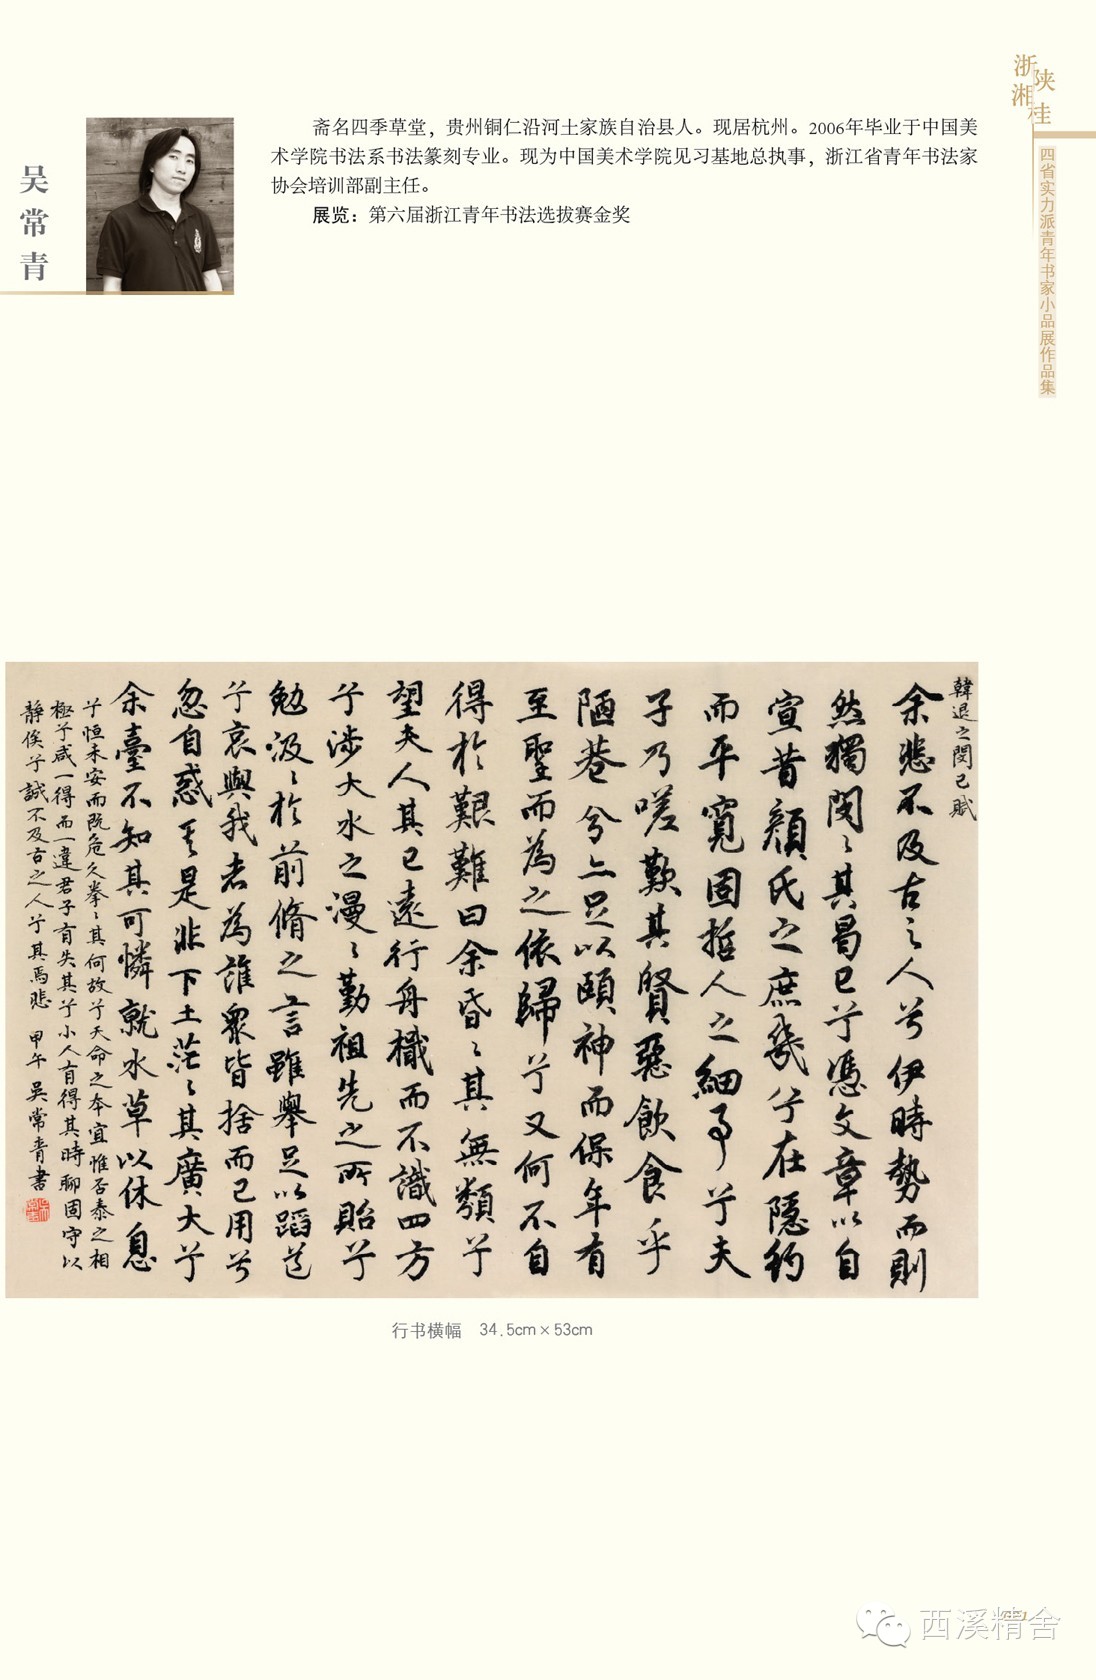 浙陕
湘桂
四省实力派青年书家小品展作品集
吴常青
斋名四季草堂，贵州铜仁沿河土家族自治县人。现居杭州。2006年毕业于中国美
术学院书法系书法篆刻专业。现为中国美术学院见习基地总执事，浙江省青年书法家
协会培训部副主任。
展览：第六届浙江青年书法选拔赛金奖
韓退之閔己賦
余悲不及古之人兮伊時勢而則
然獨閔〻其曷已兮憑文章以自
宣昔顏氏之庶幾兮在隱約
而平寬固哲人之細事兮夫
子乃嗟歎其賢惡飲食乎
陋巷兮亦足以頤神而保年有
至聖而為之依歸兮又何不自
得於艱難曰余昏〻其無類兮
望夫人其已遠行舟檝而不識四方
兮涉大水之漫〻勤祖先之所貽兮
勉汲〻於前脩之言雖舉足以蹈道
兮哀與我者為誰眾皆捨而己用兮
忽自惑其是非下土茫〻其廣大兮
余臺不知其可憐就水草以休息
兮恒未安而既危久拳〻其何故兮天命之本宜惟否泰之相
極兮咸一得而一違君子有失其兮小人有得其時聊固守以
靜俟兮誠不及古之人兮其焉悲 甲午 吳常青書
行书横幅 34.5cm×53cm
西溪精舍